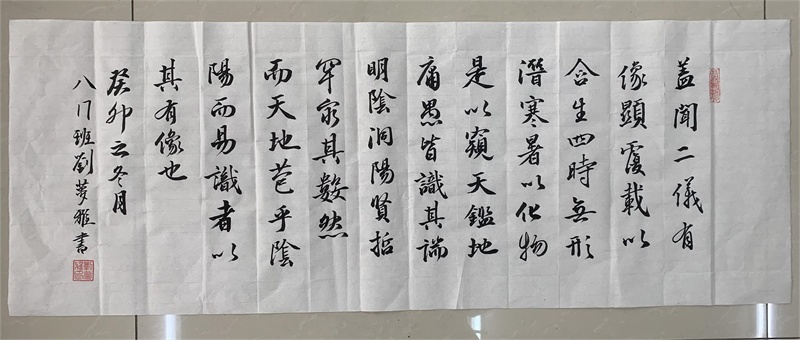 蓋聞二儀有
像顯覆載以
含生四時無形
潛寒暑以化物
是以窺天鑑地
庸愚皆識其端
明陰洞陽賢哲
罕窮其數然
而天地苞乎陰
陽而易識者以
其有像也
癸卯之冬月
八八班劉夢雅書